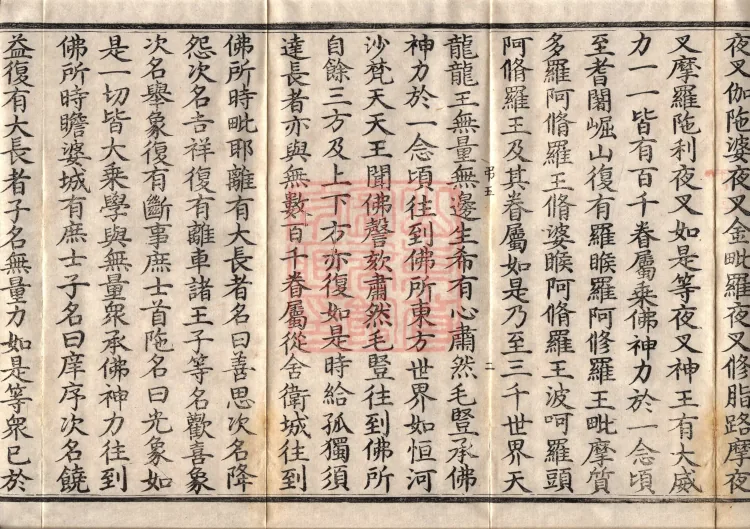 夜叉伽陁婆夜叉金毗羅夜叉修脂路摩夜
叉摩羅陁利夜叉如是等夜叉神王有大威
力一一皆有百千眷屬乗佛神力於一念頃
至耆闍崛山復有羅睺羅阿修羅王毗摩質
多羅阿脩羅王脩婆睺阿脩羅王波呵羅頭
阿脩羅王及其眷屬如是乃至三千世界天
弔五
二
龍龍王無量無邊生希有心肅然毛竪承佛
神力於一念頃往到佛所東方世界如恒河
沙梵天天王聞佛謦欬肅然毛竪往到佛所
自餘三方及上下方亦復如是時給孤獨須
達長者亦與無數百千眷屬從舍衛城往到
佛所時毗耶離有大長者名曰善思次名降
怨次名吉祥復有離車諸王子等名歡喜象
次名舉象復有斷事庶士首陁名曰光象如
是一切皆大乗學與無量衆承佛神力往到
佛所時瞻婆城有庶士子名曰庠序次名饒
益復有大長者子名無量力如是等衆已於